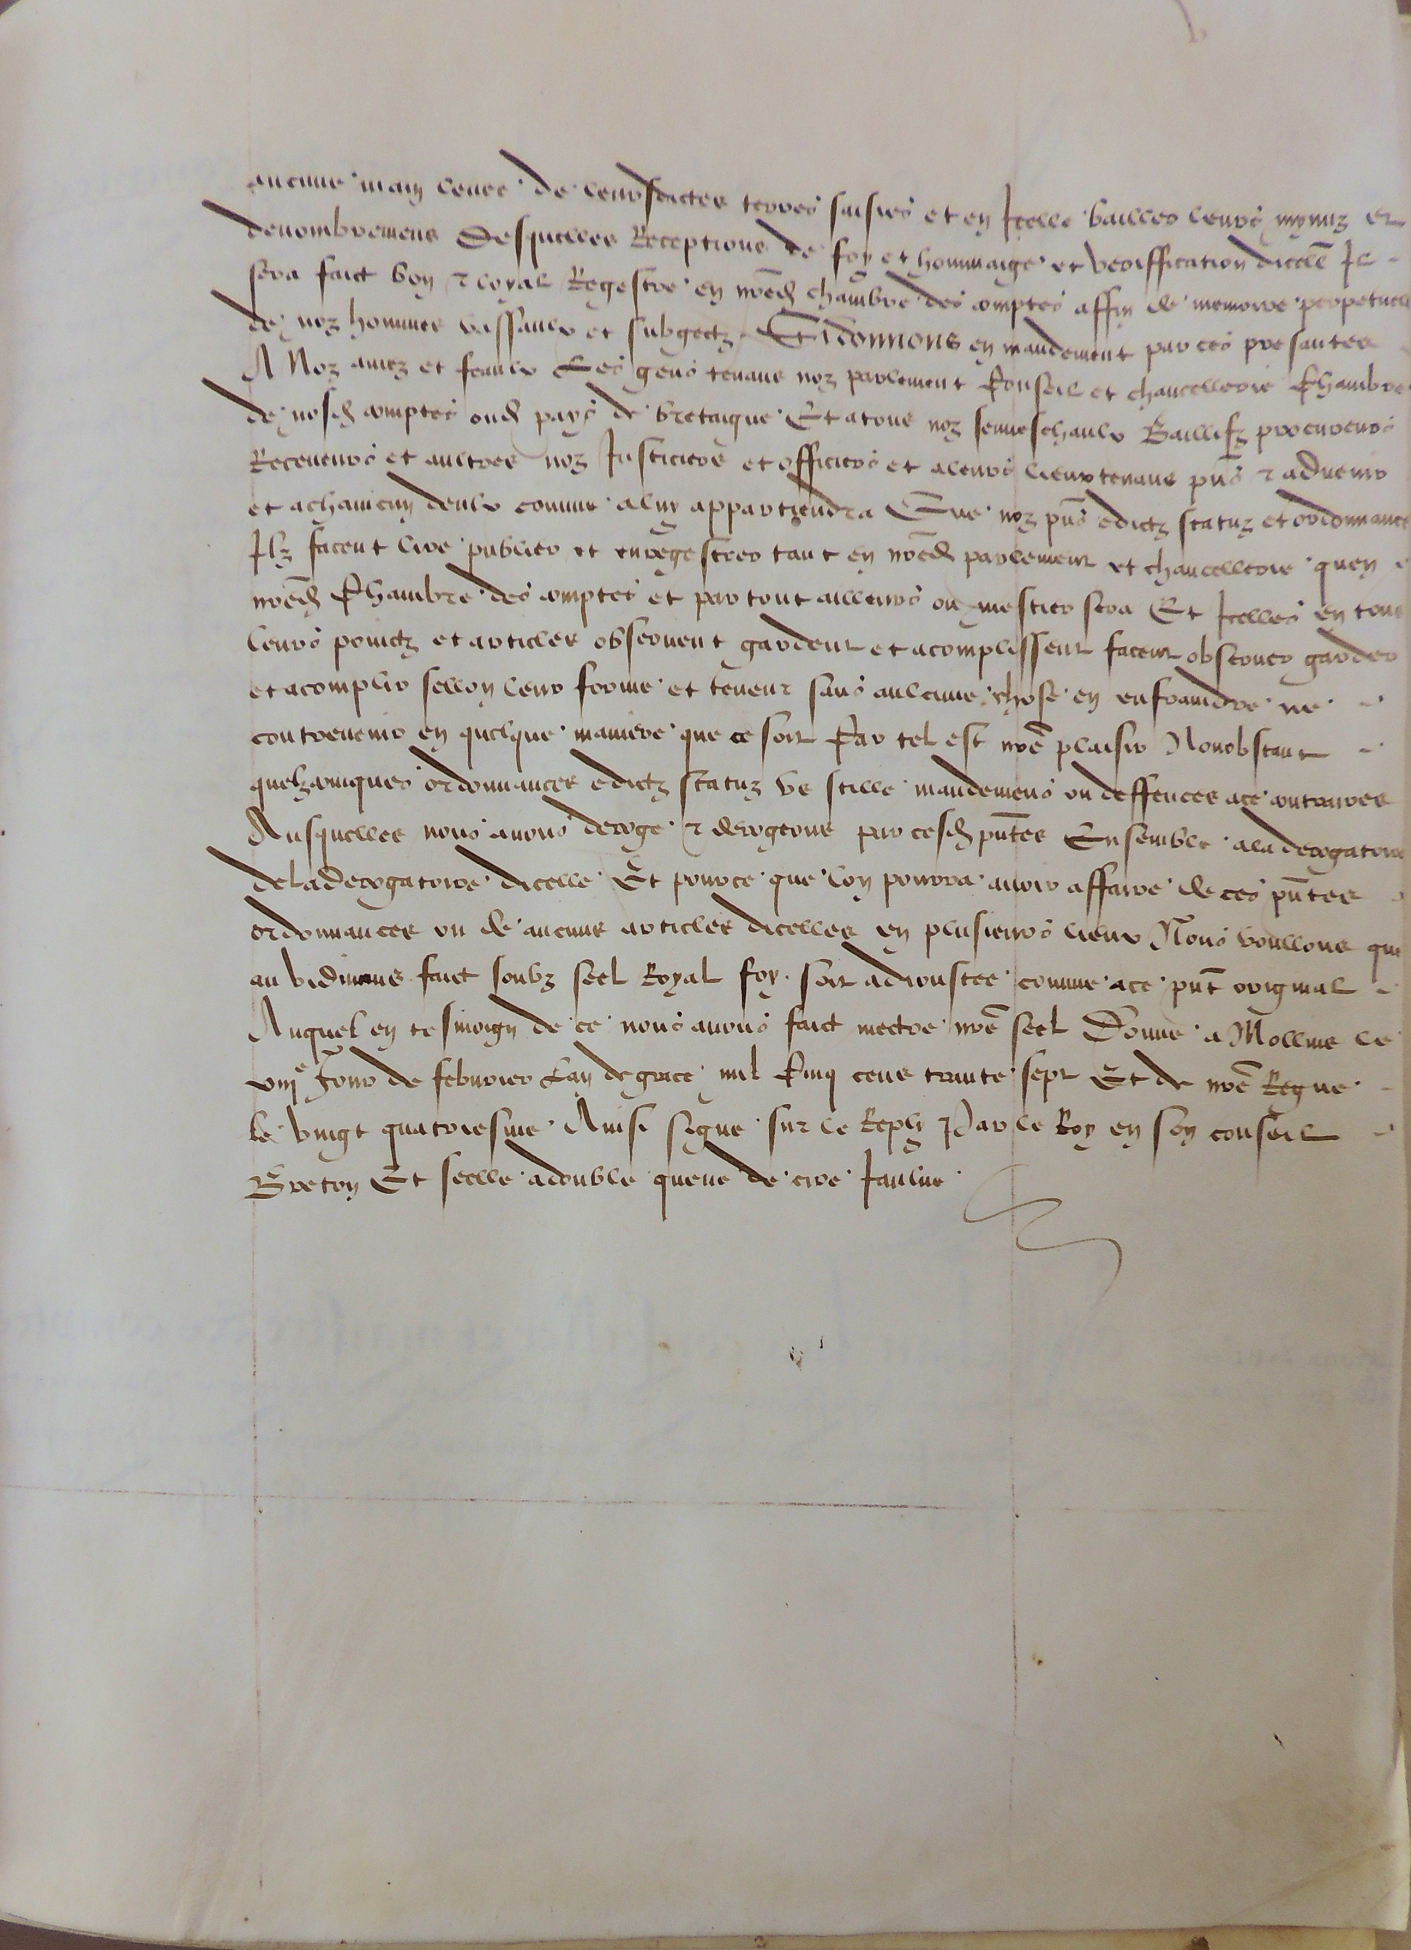 aucune main levee de leursdictes terres saisies et en Icelle bailler leurs mynuz et
denombremens Desquelles Receptions de foy et hommaige et veriffication dicell Il
sera faict bon & loyal Regestre en nred chambre des comptes affin de memoire perpetuell
de noz hommes vassaulx et subgectz Si donnons en mandement par ces presantes
A Noz amez et feaulx Les gens tenans noz parlement Conseil et chancellerie Chambre
de nosd comptes oud pays de bretaigne Et a tous noz senneschaulx Baillifz procureurs
Receveurs et aultres noz Justiciers et officiers et a leurs lieuxtenans pns & advenir
et a chaincun deulx comme a luy appartiendra Que noz pns edictz statuz et ordonnances
Ilz facent lire publier et enregestrer tant en nred parlement et chancellerie quen
nred Chambre des comptes et partout ailleurs ou mestier sera Et Icelles en tous
leurs poinctz et articles observent gardent et acomplissent facent observer garder
et acomplir sellon leur forme et teneur sans aulcune chose en enfraindre ne
contrevenir en quelque maniere que ce soit Car tel est nre plaisir Nonobstant
quelzconques ordonnances edictz statuz us stille mandemens ou deffences a ce contraires
Ausquelles nous avons deroge & derogeons par cesd pntes Ensemble a la derogatoire
de la derogatoire dicelle Et pource que lon pourra avoir affaire de ces pntes
ordonnances ou de aucuns articles dicelles en plusieurs lieux Nous voullons que
au vidimus faict soubz seel Royal foy soit adjoustee comme a ce pnt original
Auquel en tesmoign de ce nous avons faict mectre nre seel Donne a Mollins le
viije jour de febvrier Lan de grace mil Cinq cens trante sept Et de nre Regne
le vingt quatriesme Ainsi signe sur le Reply Par le Roy en son conseil
Breton Et seelle a double queue de cire Jaulne